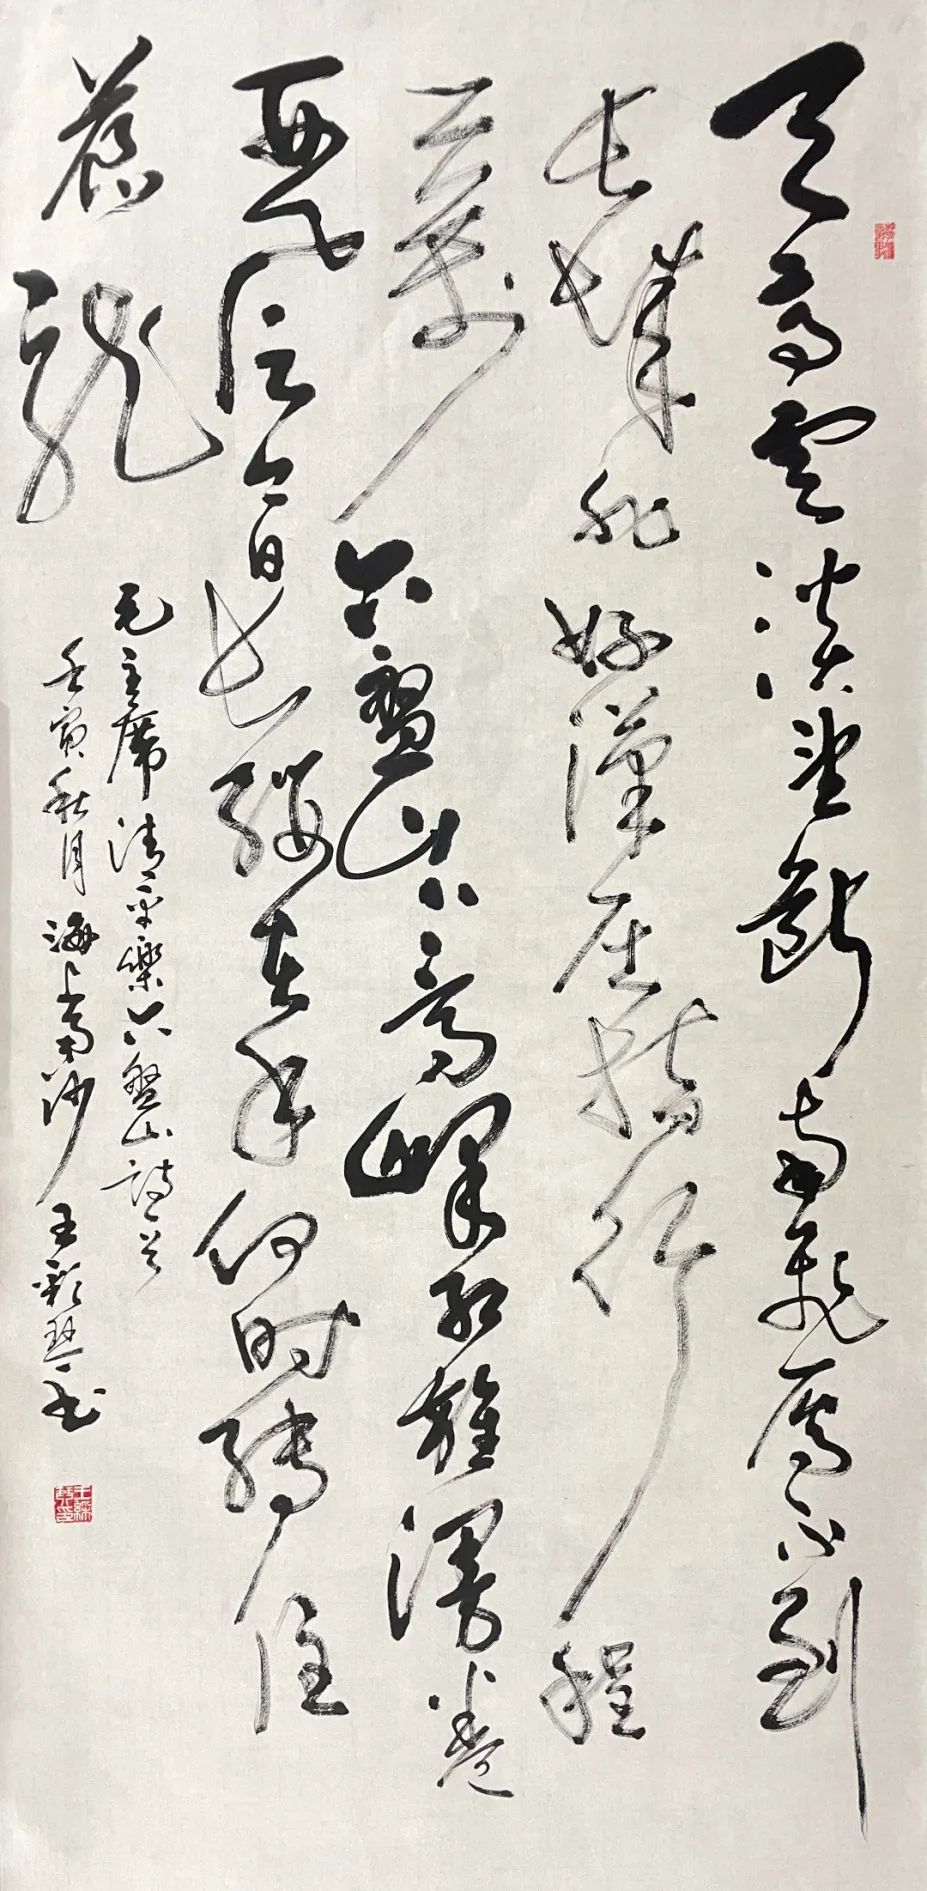 天高雲淡望斷南飛雁不到
長城非好漢屈指行程
二萬六盤山上高峰紅旗漫卷
西風今日長纓在手何時縛住
蒼龍
毛主席清平樂六盤山詩
壬寅秋月海上沙王彩琴書